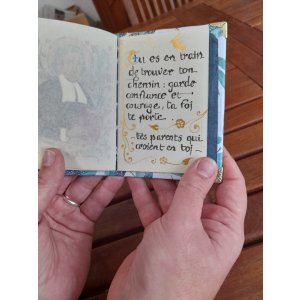 Tu es en train
de trouver ton
chemin : garde
confiance et
courage, ta foi
te porte.
- tes parents qui
croient en toi -